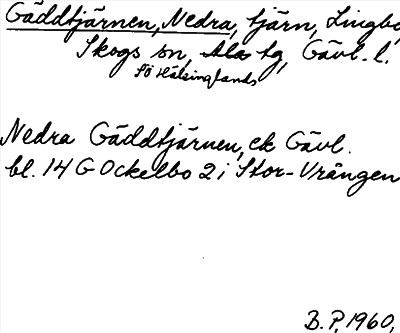 Gäddtjärnen, Nedra, tjärn, Lingbo,
Skogs sn, Ala tg, Gävl. l.
Sö Hälsinglands
Nedra Gäddtjärnen, ek Gävl.
bl. 14 G Ockelbo 2 i Stor-Vrången
B. P. 1960.